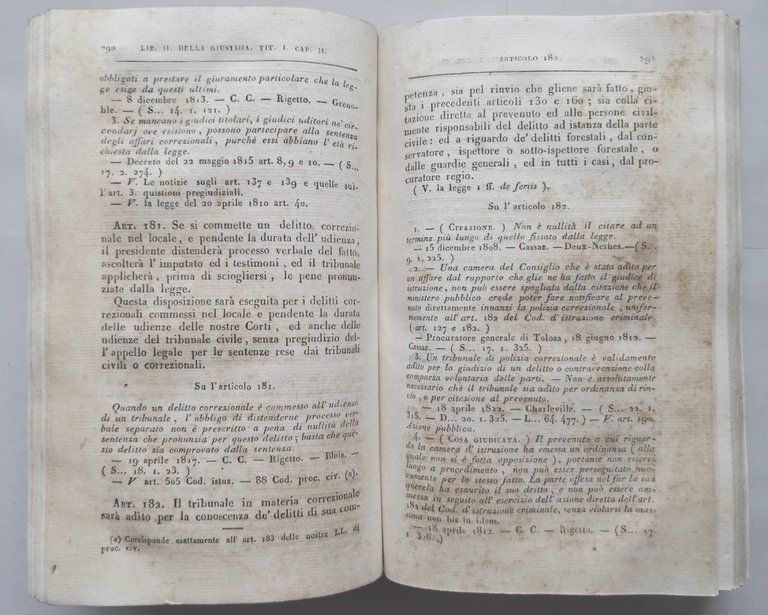 290 LIB. II. DELLA GIUSTIZIA. TIT. I. CAP. II.
obbligati a prestare il giuramento particolare che la leg-
ge esige da questi ultimi.
— 8 dicembre 1813. — C. C. — Rigetto. — Greno-
ble. — ( S... 14. 1. 121. )
3. Se mancano i giudici titolari, i giudici uditori ne' cir-
condarj ove esistono, possono partecipare alla sentenza
degli affari correzionali, purchè essi abbiano l'età ri-
chiesta dalla legge.
— Decreto del 22 maggio 1815 art. 8, 9 e 10. — ( S...
17. 2. 274. )
— V. Le notizie sugli art. 137 e 139 e quelle sul-
l'art. 3. quistioni pregiudiziali.
— V. la legge del 20 aprile 1810 art. 40.
ART. 181. Se si commette un delitto correzio-
nale nel locale, e pendente la durata dell' udienza,
il presidente distenderà processo verbale del fatto,
ascolterà l'imputato ed i testimoni, ed il tribunale
applicherà, prima di sciogliersi, le pene pronun-
ziate dalla legge.
Questa disposizione sarà eseguita per i delitti cor-
rezionali commessi nel locale e pendente la durata
delle udienze delle nostre Corti, ed anche delle
udienze del tribunale civile, senza pregiudizio del-
l'appello legale per le sentenze rese dai tribunali
civili o correzionali.
Su l'articolo 181.
Quando un delitto correzionale è commesso all'udienza
di un tribunale, l'obbligo di distenderne processo ver-
bale separato non è prescritto a pena di nullità della
sentenza che pronunzia per questo delitto; basta che que-
sto delitto sia comprovato dalla sentenza.
— 19 aprile 1817. — C. C. — Rigetto. — Blois. —
( S... 18. 1. 23. )
— V art. 505 Cod. istuz. — 88 Cod. proc. civ. (a).
ART. 182. Il tribunale in materia correzionale
sarà adito per la conoscenza de' delitti di sua com-
(a) Corrisponde esattamente all' art. 183 delle nostre LL. di
proc. civ.
ARTICOLO 182. 291
petenza, sia pel rinvio che gliene sarà fatto, giu-
sta i precedenti articoli 130 e 160; sia colla ci-
tazione diretta al prevenuto ed alle persone civil-
mente responsabili del delitto ad istanza della parte
civile: ed a riguardo de' delitti forestali, dal con-
servatore, ispettore o sotto-ispettore forestale, o
dalle guardie generali, ed in tutti i casi, dal pro-
curatore regio.
( V. la legge 1 ff. de feriis ).
Su l'articolo 182.
1. — ( CITAZIONE. ) Non è nullità il citare ad un
termine più lungo di quello fissato dalla legge.
— 15 dicembre 1808. — Cassaz. — Deux-Nethes. — (S...
9. 1. 225. )
2. — Una camera del Consiglio che è stata adito per
un affare dal rapporto che glie ne ha fatto il giudice di
istruzione, non può essere spogliata dalla citazione che il
ministero pubblico crede poter fare notificare al preve-
nuto direttamente innanzi la polizia correzionale, unifor-
memente all' art. 182 del Cod. d'istruzione criminale
( art. 127 e 182. )
— Procuratore generale di Tolosa, 18 giugno 1812. —
Cassaz. — ( S... 17. 1. 325. )
3. Un tribunale di polizia correzionale è validamente
adito per lo giudizio di un delitto o contravvenzione colla
comparsa volontaria delle parti. — Non è assolutamente
necessario che il tribunale sia adito per ordinanza di rin-
vio, o per citazione al prevenuto.
— 18 aprile 1822. — Charleville. — ( S... 22. 1.
313. — D... 20. 1. 325. — L... 64. 477.) — V. art. 190.
Azione pubblica.
4. — ( COSA GIUDICATA. ) Il prevenuto a cui riguar-
do la camera d' istruzione ha emessa un ordinanza ( alla
quale non si è fatta opposizione ), portante non esservi
luogo a procedimento, non può essere perseguitato nuo-
vamente per lo stesso fatto. La parte offesa nel far la sua
querela ha esaurito il suo dritto, e non può essere am-
messa in seguito all' esercizio dell' azione diretta dell'art.
182 del Cod. d'istruzione criminale, senza violarsi la mas-
sima non bis in idem.
— 18 aprile 1812. — C. C. — Rigetto. — (S... 17.
1. 326. )